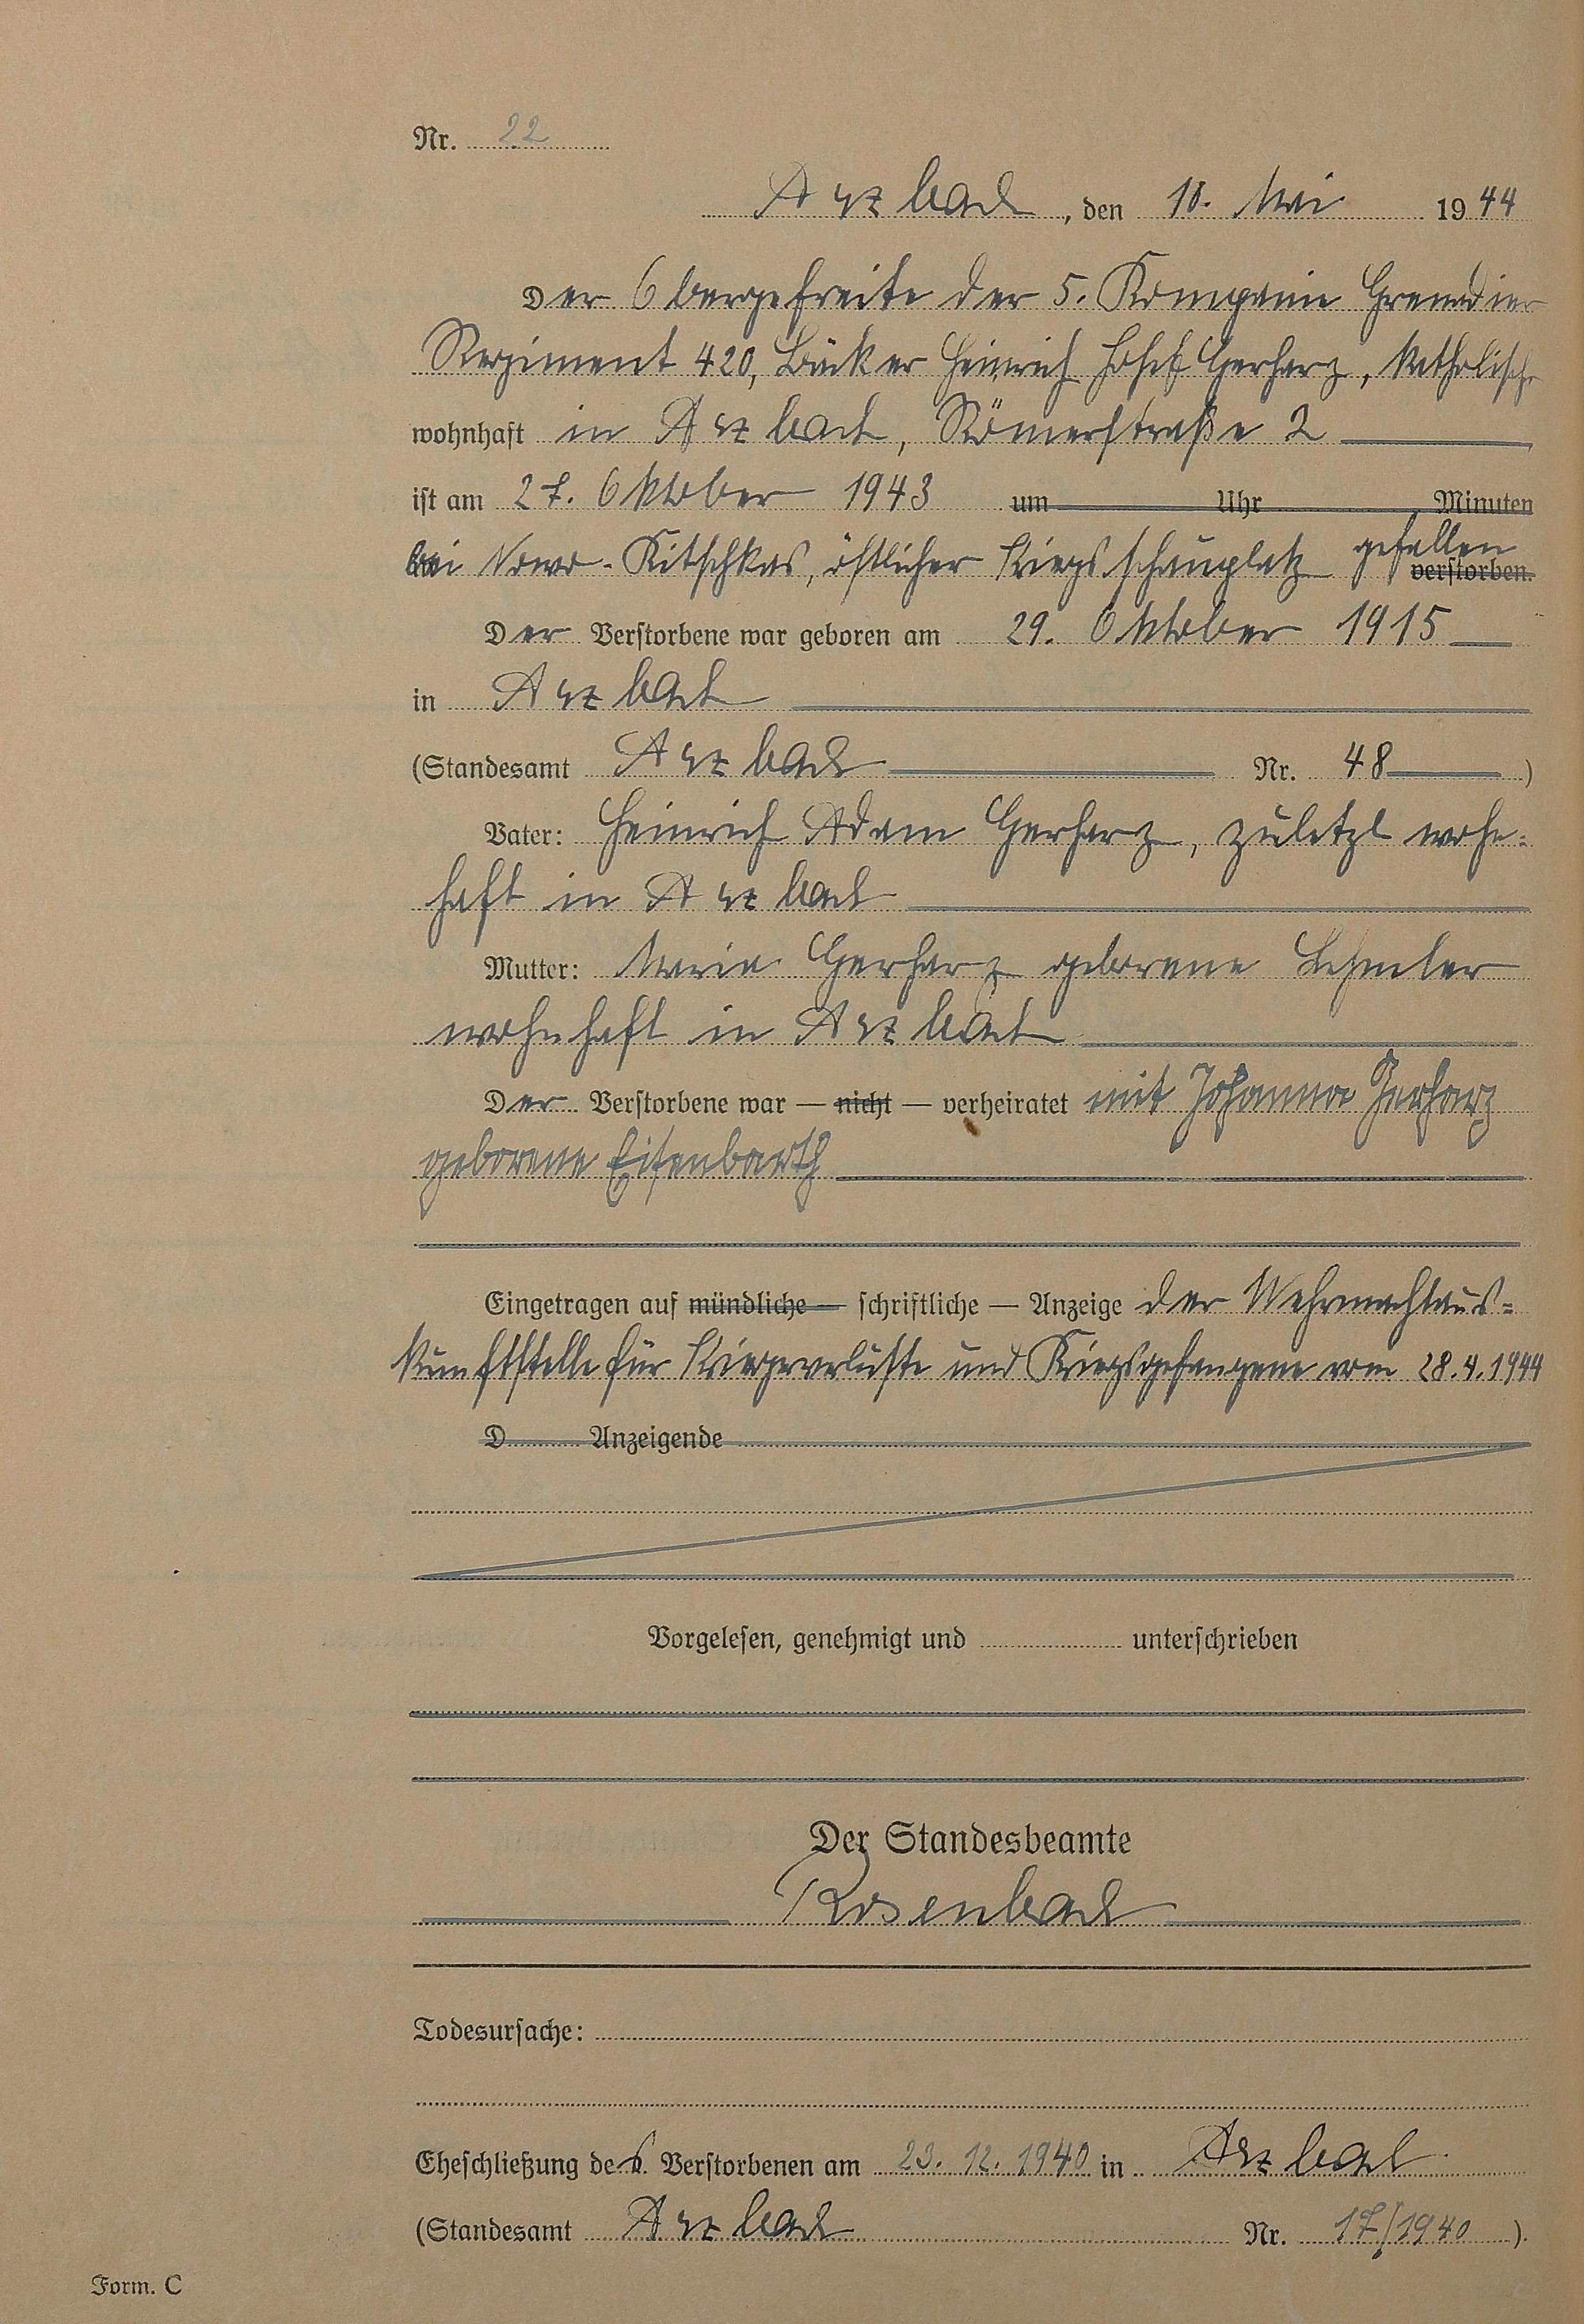 Nr. 22
Arzbach, den 10. Mai 1944
Der Obergefreite der 5. Kompanie Grenadier
Regiment 420, Bäcker Heinrich Josef Gerharz, katholisch
wohnhaft in Arzbach, Römerstraße 2
ist am 27. Oktober 1943 um Uhr Minuten
bei Nowo-Kitschkas, östlicher Kriegsschauplatz gefallen verstorben.
Der Verstorbene war geboren am 29. Oktober 1915
in Arzbach
(Standesamt Arzbach Nr. 48)
Vater: Heinrich Adam Gerharz, zuletzt wohn-
haft in Arzbach
Mutter: Maria Gerharz geborene Lehmler
wohnhaft in Arzbach
Der Verstorbene war — nicht — verheiratet mit Johanna Gerharz
geborene Eisenbarth
Eingetragen auf mündliche — schriftliche — Anzeige der Wehrmachtaus-
kunftstelle für Kriegerverluste und Kriegsgefangene vom 28.4.1944
D Anzeigende
Vorgelesen, genehmigt und unterschrieben
Der Standesbeamte
Rosenbach
Todesursache:
Eheschließung des Verstorbenen am 23.12.1940 in Arzbach
(Standesamt Arzbach Nr. 17/1940).
Form. C